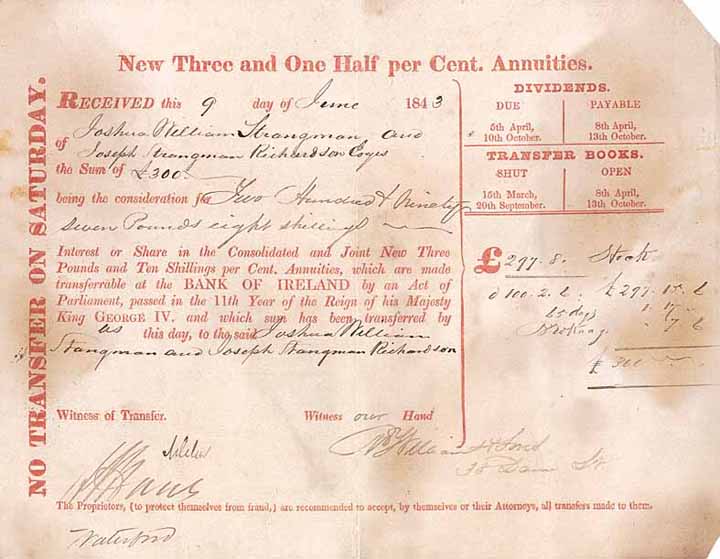 NO TRANSFER ON SATURDAY.
New Three and One Half per Cent. Annuities.
RECEIVED this 9 day of June 1843
of Joshua William Strangman and
Joseph Strangman Richardson Esqrs
the Sum of £300
being the consideration for Two Hundred & Ninety
seven Pounds eight shillings
Interest or Share in the Consolidated and Joint New Three
Pounds and Ten Shillings per Cent. Annuities, which are made
transferrable at the BANK OF IRELAND by an Act of
Parliament, passed in the 11th Year of the Reign of his Majesty
King GEORGE IV. and which sum has been transferred by
us this day, to the said Joshua William
Strangman and Joseph Strangman Richardson
Witness of Transfer.
Witness our Hand
Waterford
The Proprietors, (to protect themselves from fraud,) are recommended to accept, by themselves or their Attorneys, all transfers made to them.
DIVIDENDS.
DUE PAYABLE
5th April, 8th April,
10th October. 13th October.
TRANSFER BOOKS.
SHUT OPEN
15th March, 8th April,
20th September. 13th October.
£ 297. 8. Stock
@ 100. 2. 6 £ 297. 15. 6
£ 300